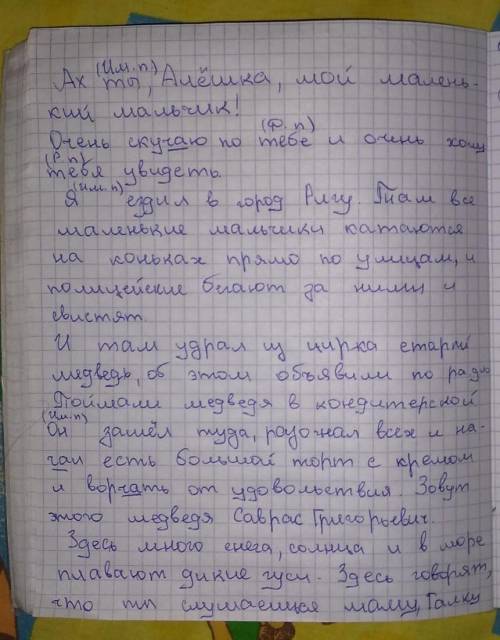 (Им. п)
Ах ты, Алёшка, мой малень-
кий мальчик!
(Д. п)
Очень скучаю по тебе и очень хочу
(Р. п)
тебя увидеть.
(Им. п)
Я ездил в город Ригу. Там все
маленькие мальчики катаются
на коньках прямо по улицам, и
полицейские бегают за ними и
свистят.
И там удрал из цирка старый
медведь, об этом объявили по радио
Поймали медведя в кондитерской
(Им. п)
Он зашёл туда, разогнал всех и на-
чал есть большой торт с кремом
и ворчать от удовольствия. Зовут
этого медведя Саврас Григорьевич.
Здесь много снега, солнца и в море
плавают дикие гуси. Здесь говорят,
что ты слушаешься маму, Галку